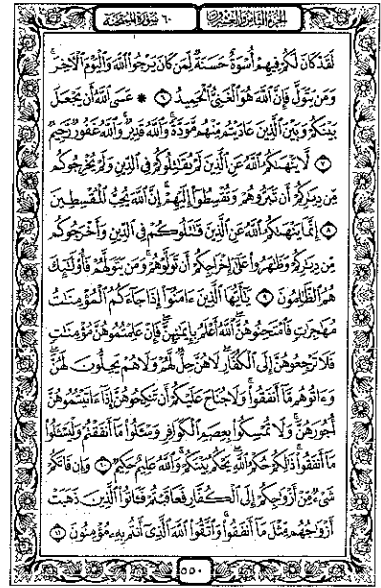 الجزء الثامن والعشرون ٦٠ سورة الممتحنة
لَقَدْ كَانَ لَكُمْ فِيهِمْ أُسْوَةٌ حَسَنَةٌ لِّمَن كَانَ يَرْجُوا۟ ٱللَّهَ وَٱلْيَوْمَ ٱلْـَٔاخِرَ ۚ
وَمَن يَتَوَلَّ فَإِنَّ ٱللَّهَ هُوَ ٱلْغَنِىُّ ٱلْحَمِيدُ ٦ ۞ عَسَى ٱللَّهُ أَن يَجْعَلَ
بَيْنَكُمْ وَبَيْنَ ٱلَّذِينَ عَادَيْتُم مِّنْهُم مَّوَدَّةً ۚ وَٱللَّهُ قَدِيرٌ ۚ وَٱللَّهُ غَفُورٌ رَّحِيمٌ
٧ لَّا يَنْهَىٰكُمُ ٱللَّهُ عَنِ ٱلَّذِينَ لَمْ يُقَـٰتِلُوكُمْ فِى ٱلدِّينِ وَلَمْ يُخْرِجُوكُم
مِّن دِيَـٰرِكُمْ أَن تَبَرُّوهُمْ وَتُقْسِطُوٓا۟ إِلَيْهِمْ ۚ إِنَّ ٱللَّهَ يُحِبُّ ٱلْمُقْسِطِينَ
٨ إِنَّمَا يَنْهَىٰكُمُ ٱللَّهُ عَنِ ٱلَّذِينَ قَـٰتَلُوكُمْ فِى ٱلدِّينِ وَأَخْرَجُوكُم
مِّن دِيَـٰرِكُمْ وَظَـٰهَرُوا۟ عَلَىٰٓ إِخْرَاجِكُمْ أَن تَوَلَّوْهُمْ ۚ وَمَن يَتَوَلَّهُمْ فَأُو۟لَـٰٓئِكَ
هُمُ ٱلظَّـٰلِمُونَ ٩ يَـٰٓأَيُّهَا ٱلَّذِينَ ءَامَنُوٓا۟ إِذَا جَآءَكُمُ ٱلْمُؤْمِنَـٰتُ
مُهَـٰجِرَٰتٍ فَٱمْتَحِنُوهُنَّ ۖ ٱللَّهُ أَعْلَمُ بِإِيمَـٰنِهِنَّ ۖ فَإِنْ عَلِمْتُمُوهُنَّ مُؤْمِنَـٰتٍ
فَلَا تَرْجِعُوهُنَّ إِلَى ٱلْكُفَّارِ ۖ لَا هُنَّ حِلٌّ لَّهُمْ وَلَا هُمْ يَحِلُّونَ لَهُنَّ ۖ
وَءَاتُوهُم مَّآ أَنفَقُوا۟ ۚ وَلَا جُنَاحَ عَلَيْكُمْ أَن تَنكِحُوهُنَّ إِذَآ ءَاتَيْتُمُوهُنَّ
أُجُورَهُنَّ ۚ وَلَا تُمْسِكُوا۟ بِعِصَمِ ٱلْكَوَافِرِ وَسْـَٔلُوا۟ مَآ أَنفَقْتُمْ وَلْيَسْـَٔلُوا۟
مَآ أَنفَقُوا۟ ۚ ذَٰلِكُمْ حُكْمُ ٱللَّهِ ۖ يَحْكُمُ بَيْنَكُمْ ۚ وَٱللَّهُ عَلِيمٌ حَكِيمٌ ١٠ وَإِن فَاتَكُمْ
شَىْءٌ مِّنْ أَزْوَٰجِكُمْ إِلَى ٱلْكُفَّارِ فَعَاقَبْتُمْ فَـَٔاتُوا۟ ٱلَّذِينَ ذَهَبَتْ
أَزْوَٰجُهُم مِّثْلَ مَآ أَنفَقُوا۟ ۚ وَٱتَّقُوا۟ ٱللَّهَ ٱلَّذِىٓ أَنتُم بِهِۦ مُؤْمِنُونَ ١١
٥٥٠